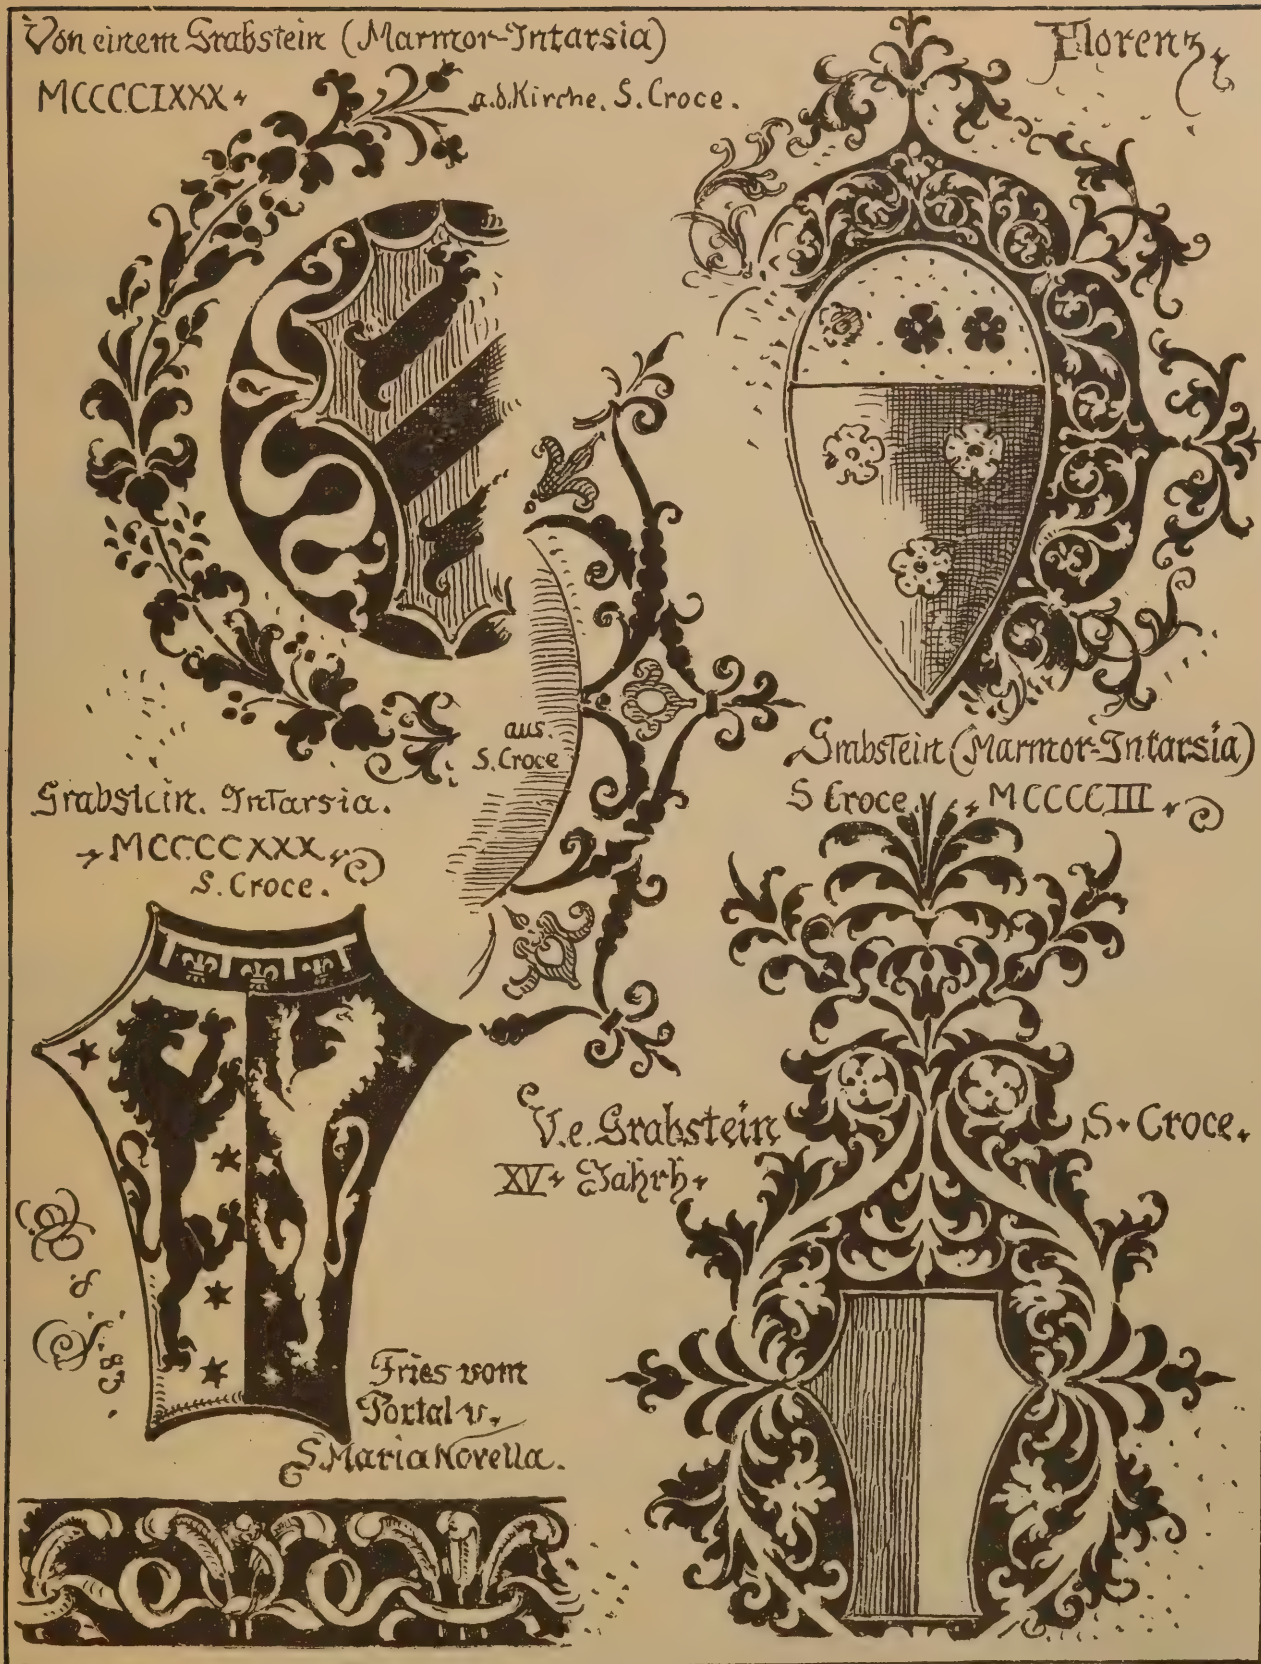 Von einem Grabstein (Marmor-Intarsia)
MCCCCCIXXX
a.d. Kirche. S. Croce.
Florenz
aus
S. Croce
Grabstein (Marmor-Intarsia)
S Croce. MCCCCCIII
Grabstein. Intarsia.
MCCCCCXXX
S. Croce.
V. e. Grabstein
XV Jahrh
S. Croce.
Fries vom
Portal v.
S. Maria Novella.